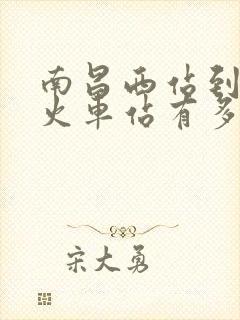 南昌西佔到
火車佔有多
宋大勇